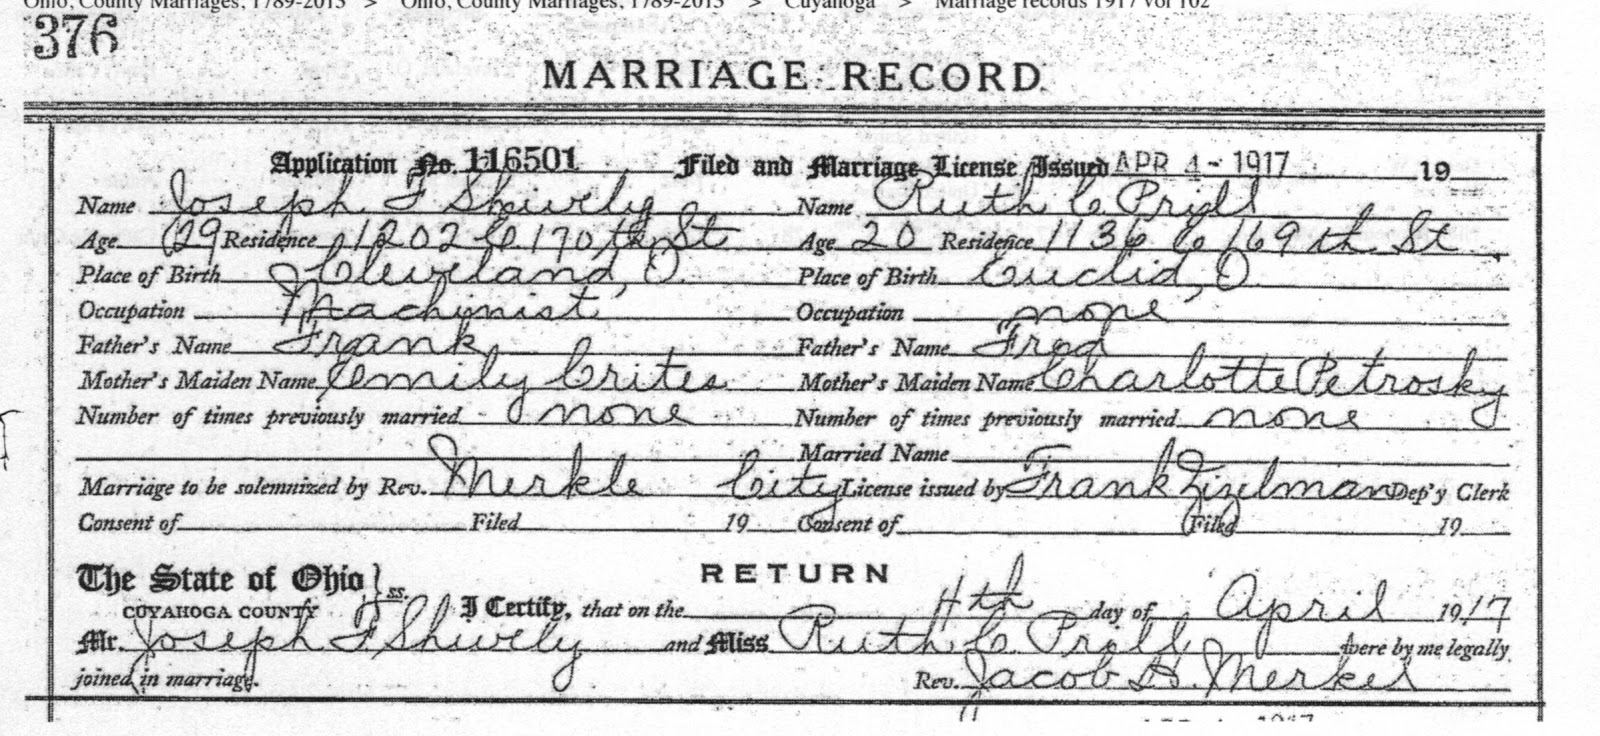 Ohio, County Marriages, 1789-2013 > Ohio, County Marriages, 1789-2013 > Cuyahoga > Marriage records 1917 vol 102
376
MARRIAGE RECORD
Application No. 116501 Filed and Marriage License Issued APR 4 - 1917 19
Name Joseph F Shively Name Ruth C. Prill
Age 29 Residence 1202 E 170th St Age 20 Residence 1136 E 169th St
Place of Birth Cleveland, O. Place of Birth Euclid, O.
Occupation Machinist Occupation none
Father's Name Frank Father's Name Fred
Mother's Maiden Name Emily Crites Mother's Maiden Name Charlotte Petrosky
Number of times previously married none Number of times previously married none
Married Name
Marriage to be solemnized by Rev. Merkle City License issued by Frank Zizelman Dep'y Clerk
Consent of Filed 19 Consent of Filed 19
The State of Ohio } ss. RETURN
CUYAHOGA COUNTY I Certify, that on the 4th day of April 1917
Mr. Joseph F Shively and Miss Ruth C. Prill were by me legally
joined in marriage. Rev. Jacob H. Merkel